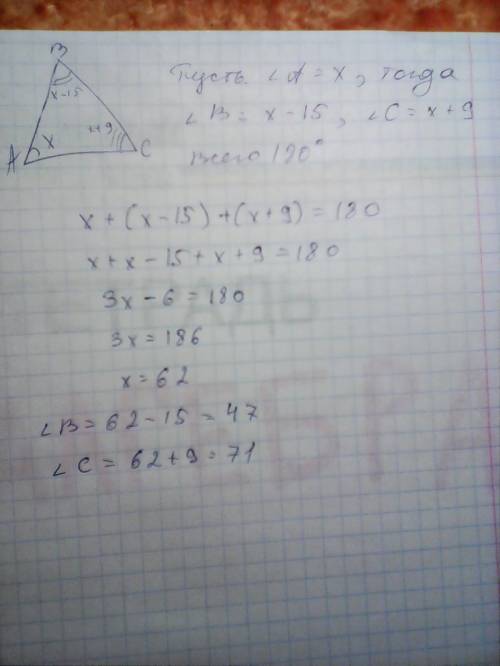 B
x-15
x+9
A x C
Пусть ∠A = x, тогда
∠B = x - 15, ∠C = x + 9
Всего 180°
x + (x - 15) + (x + 9) = 180
x + x - 15 + x + 9 = 180
3x - 6 = 180
3x = 186
x = 62
∠B = 62 - 15 = 47
∠C = 62 + 9 = 71